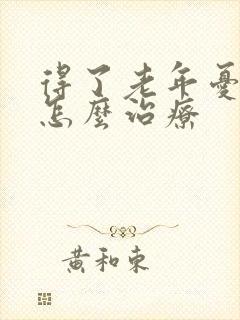 得了老年憂
怎麼治療
黃和東